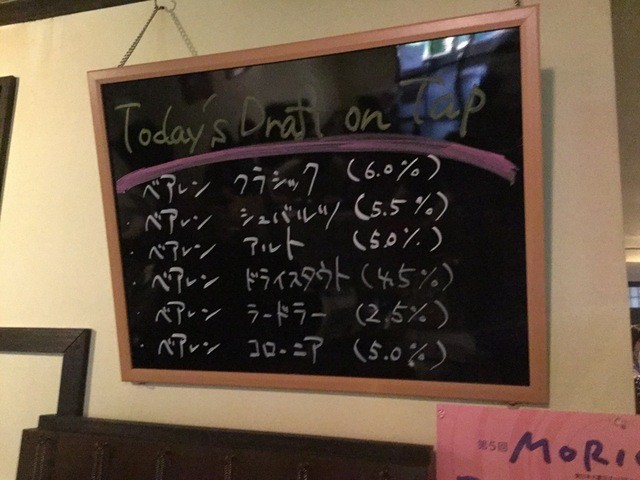 Today's Draft on Tap
ベアレン クラシック (6.0%)
・ベアレン シュバルツ (5.5%)
・ベアレン アルト (5.0%)
・ベアレン ドライスタウト (4.5%)
・ベアレン ラードラー (2.5%)
・ベアレン コローニア (5.0%)
第5回 MORIO